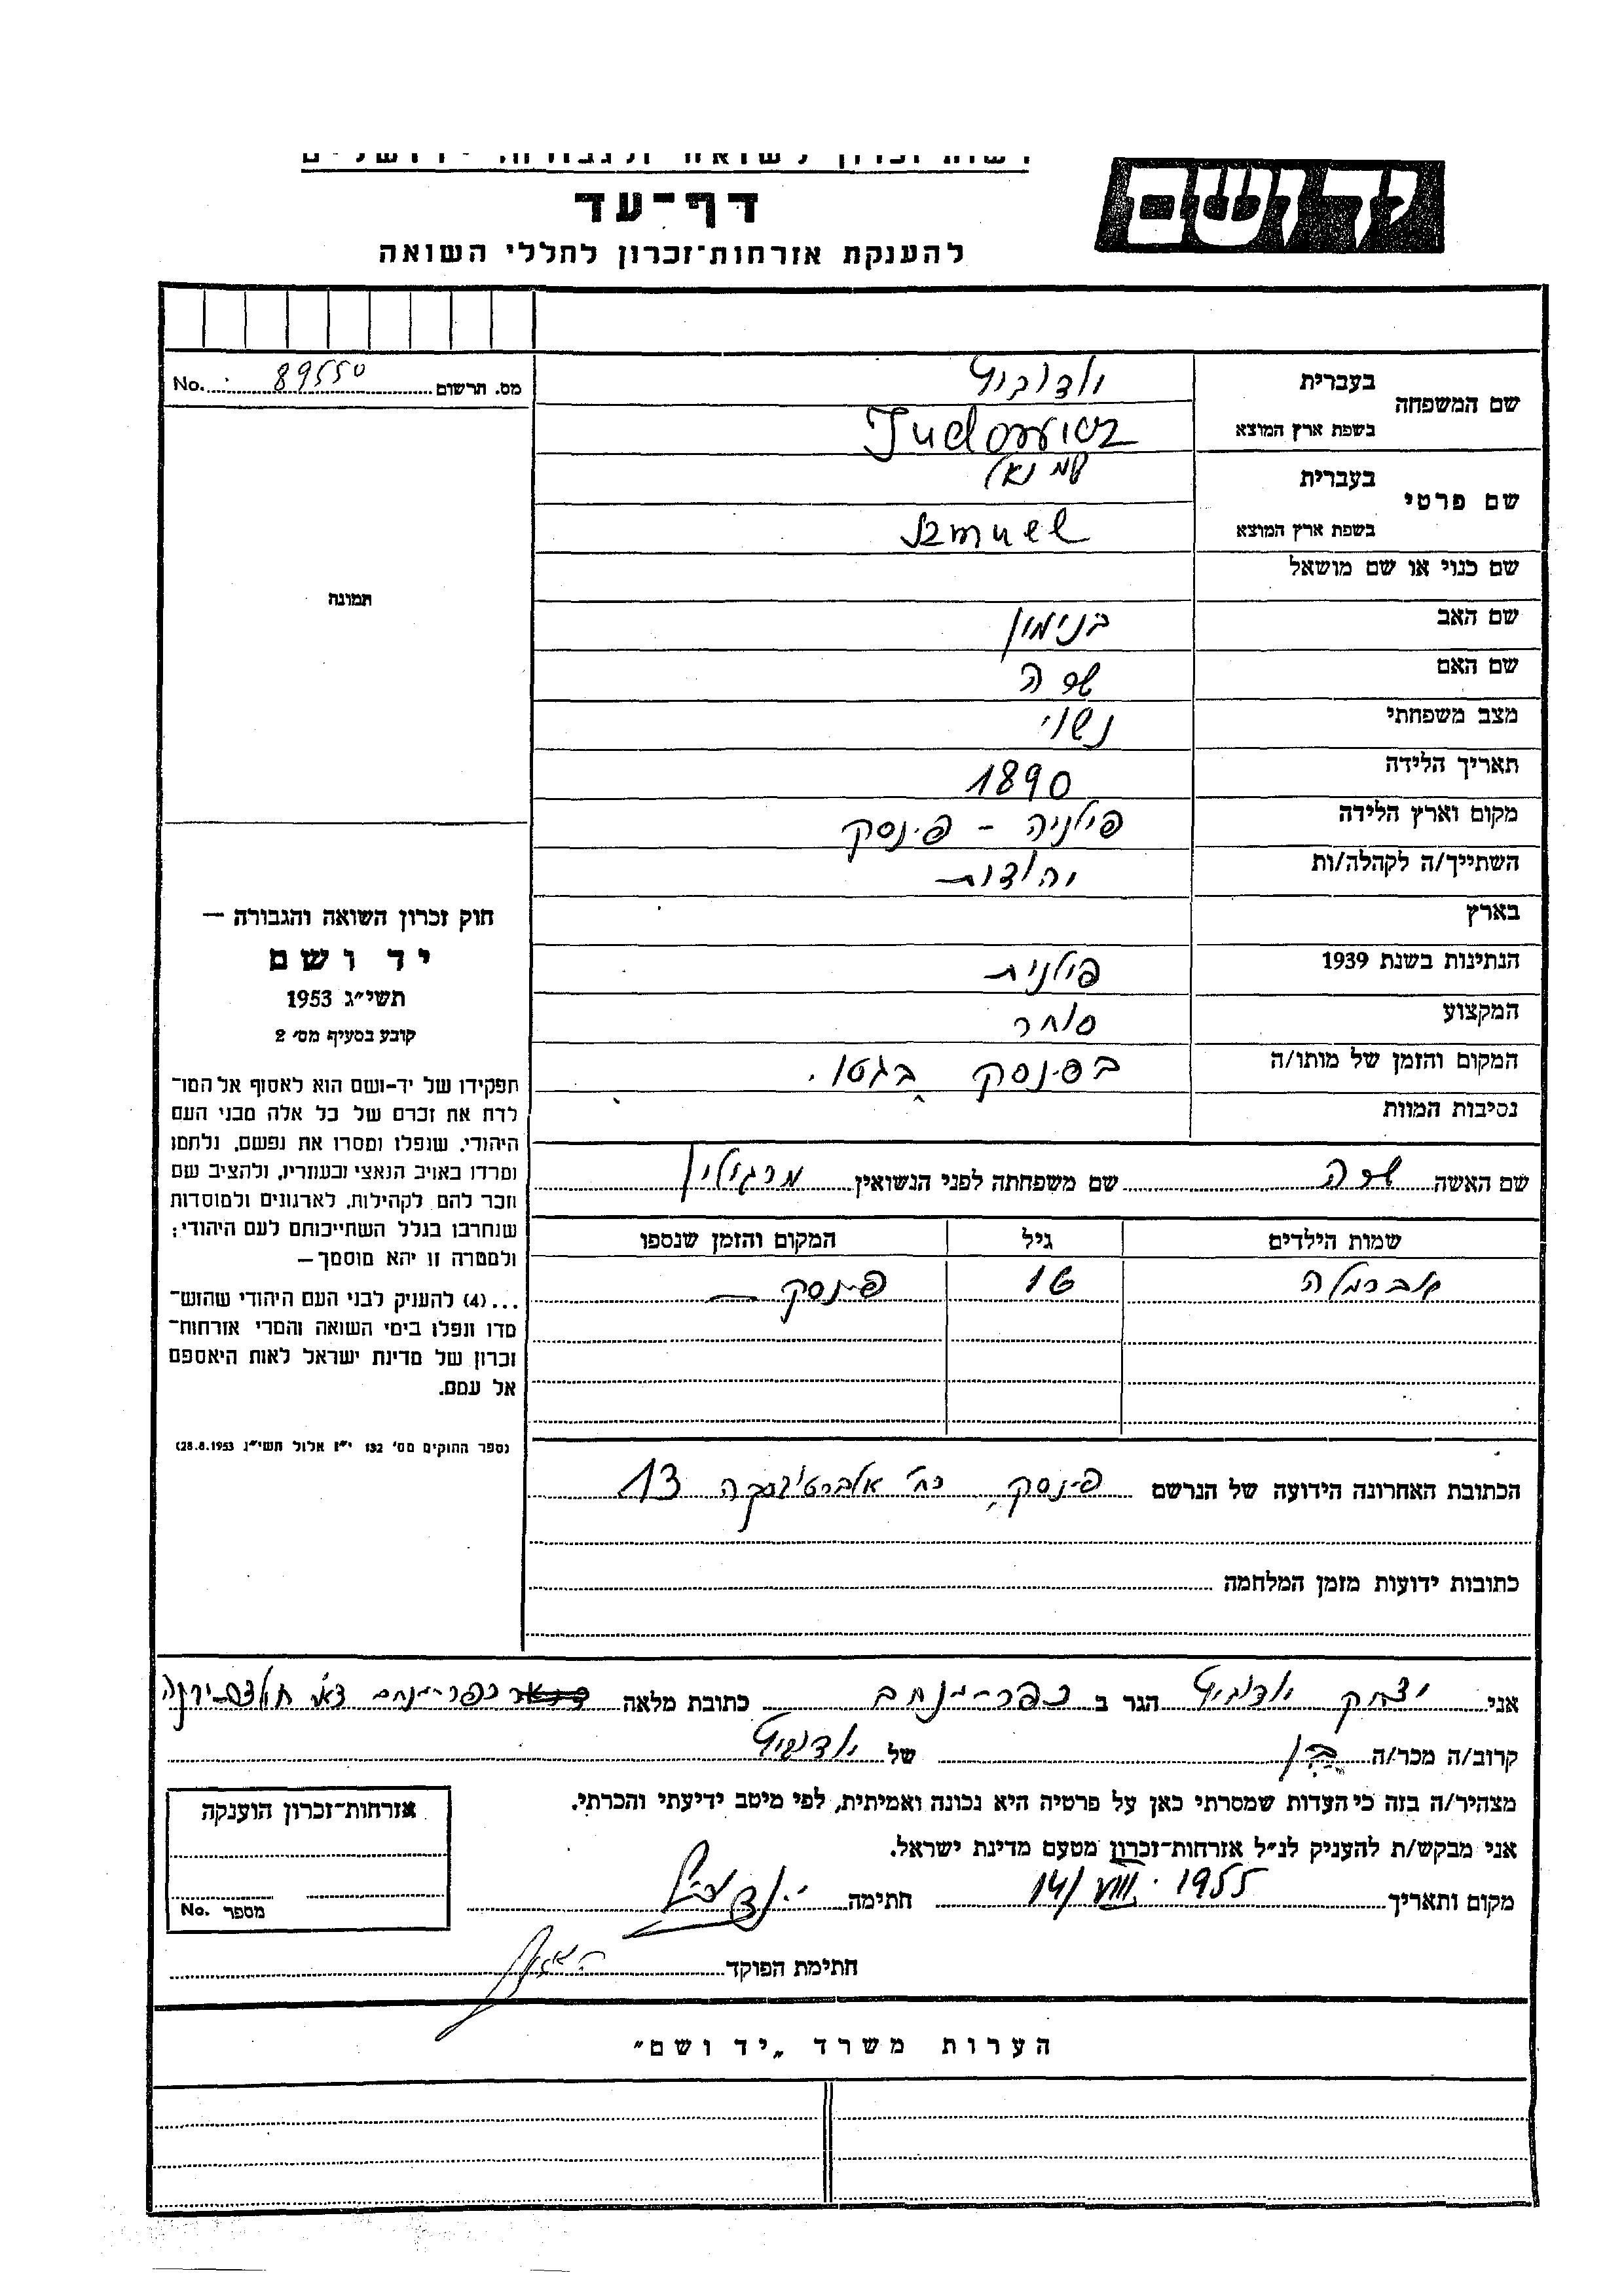 יד ושם
דף־עד
להענקת אזרחות־זכרון לחללי השואה
מס. הרשום 89550 No.
שם המשפחה
בעברית יודוביץ
בשפת ארץ המוצא Judowicz
שם פרטי
בעברית שמואל
בשפת ארץ המוצא Szmuel
שם כנוי או שם מושאל
שם האב בנימין
שם האם שרה
מצב משפחתי נשוי
תאריך הלידה 1890
מקום וארץ הלידה פולניה - פינסק
השתייך/ה לקהלה/ות יהודות
בארץ
הנתינות בשנת 1939 פולנית
המקצוע סוחר
המקום והזמן של מותו/ה בפינסק בגטו.
נסיבות המוות
שם האשה שרה שם משפחתה לפני הנשואין מרגולין
שמות הילדים גיל המקום והזמן שנספו
אברמלה 16 פינסק —
הכתובת האחרונה הידועה של הנרשם פינסק, רח' 13
כתובות ידועות מזמן המלחמה
תמונה
חוק זכרון השואה והגבורה —
יד ושם
תשי״ג 1953
קובע בסעיף מס׳ 2
תפקידו של יד-ושם הוא לאסוף אל המו־
לדת את זכרם של כל אלה מבני העם
היהודי, שנפלו ומסרו את נפשם, נלחמו
ומרדו באויב הנאצי ובעוזריו, ולהציב שם
וזכר להם לקהילות, לארגונים ולמוסדות
שנחרבו בגלל השתייכותם לעם היהודי;
ולמטרה זו יהא מוסמך —
...(4) להעניק לבני העם היהודי שהוש־
מדו ונפלו בימי השואה והמרי אזרחות־
זכרון של מדינת ישראל לאות היאספם
אל עמם.
(ספר החוקים מס׳ 132 י״ז אלול תשי״ג 28.8.1953)
אני יצחק יודוביץ הגר ב כפר-מנחם כתובת מלאה כפר-מנחם ד.נ.
קרוב/ה מכר/ה בן של יודוביץ
מצהיר/ה בזה כי העדות שמסרתי כאן על פרטיה היא נכונה ואמיתית, לפי מיטב ידיעתי והכרתי.
אני מבקש/ת להעניק לנ״ל אזרחות־זכרון מטעם מדינת ישראל.
מקום ותאריך 14/VIII.1955 חתימה
חתימת הפוקד
אזרחות־זכרון הוענקה
מספר No.
הערות משרד „יד ושם״